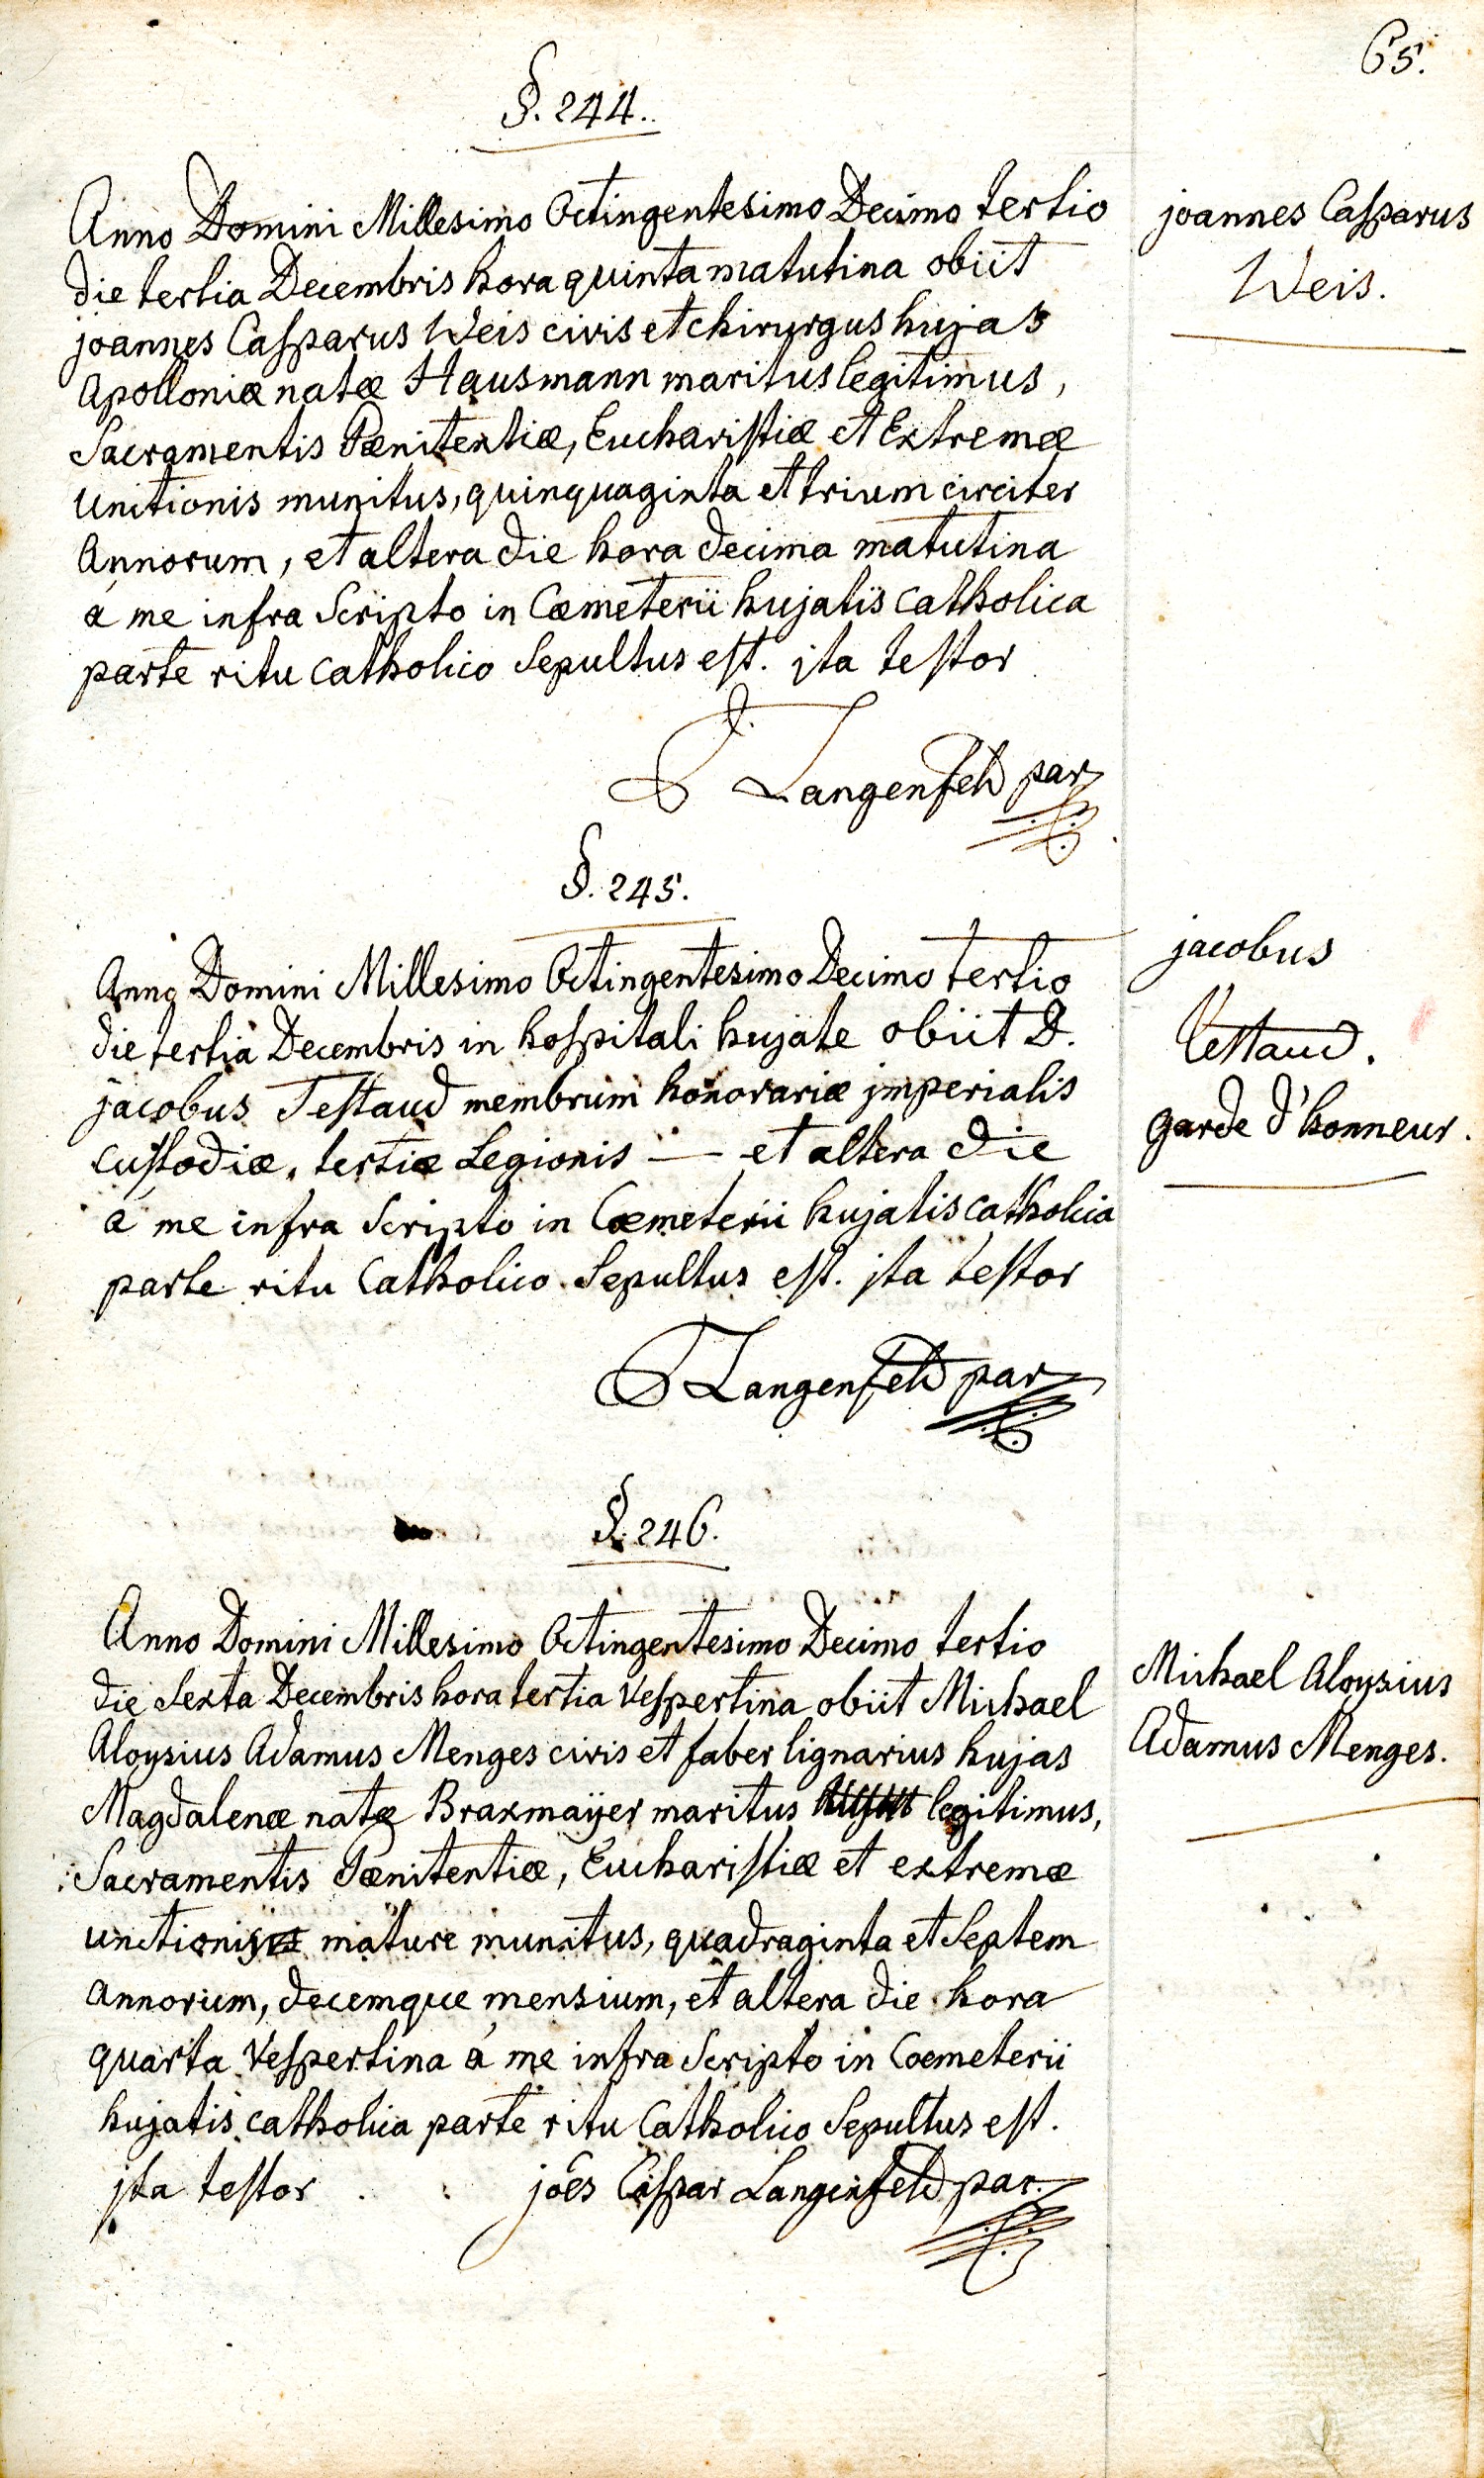 65.
§. 244.
Anno Domini Millesimo Octingentesimo Decimo tertio
die tertia Decembris hora quinta matutina obiit
joannes Casparus Weis civis et chirurgus hujas
Apolloniæ natæ Hausmann maritus legitimus,
Sacramentis Pænitentiæ, Eucharistiæ et Extremæ
Unctionis munitus, quinquaginta et trium circiter
Annorum, et altera die hora decima matutina
á me infra Scripto in Cœmeterii hujatis catholica
parte ritu catholico Sepultus est. jta testor
J. Langenfeld par
joannes Casparus
Weis.
§. 245.
Anno Domini Millesimo Octingentesimo Decimo tertio
die tertia Decembris in hospitali hujate obiit D.
jacobus Testaud membrum honorariæ jmperialis
custodiæ, tertiæ Legionis — et altera die
á me infra Scripto in Cœmeterii hujatis catholica
parte ritu Catholico Sepultus est. jta testor
J Langenfeld par
jacobus
Testaud.
garde d'honneur.
§. 246.
Anno Domini Millesimo Octingentesimo Decimo tertio
die Sexta Decembris hora tertia Vespertina obiit Michael
Aloysius Adamus Menges civis et faber lignarius hujas
Magdalenæ natæ Braxmaÿer maritus legitimus,
Sacramentis Pænitentiæ, Eucharistiæ et extremæ
unctionis mature munitus, quadraginta et Septem
annorum, decemque mensium, et altera die hora
quarta Vespertina á me infra Scripto in Coemeterii
hujatis catholica parte ritu Catholico Sepultus est.
jta testor . . joês Caspar Langenfeld par.
Michael Aloysius
Adamus Menges.